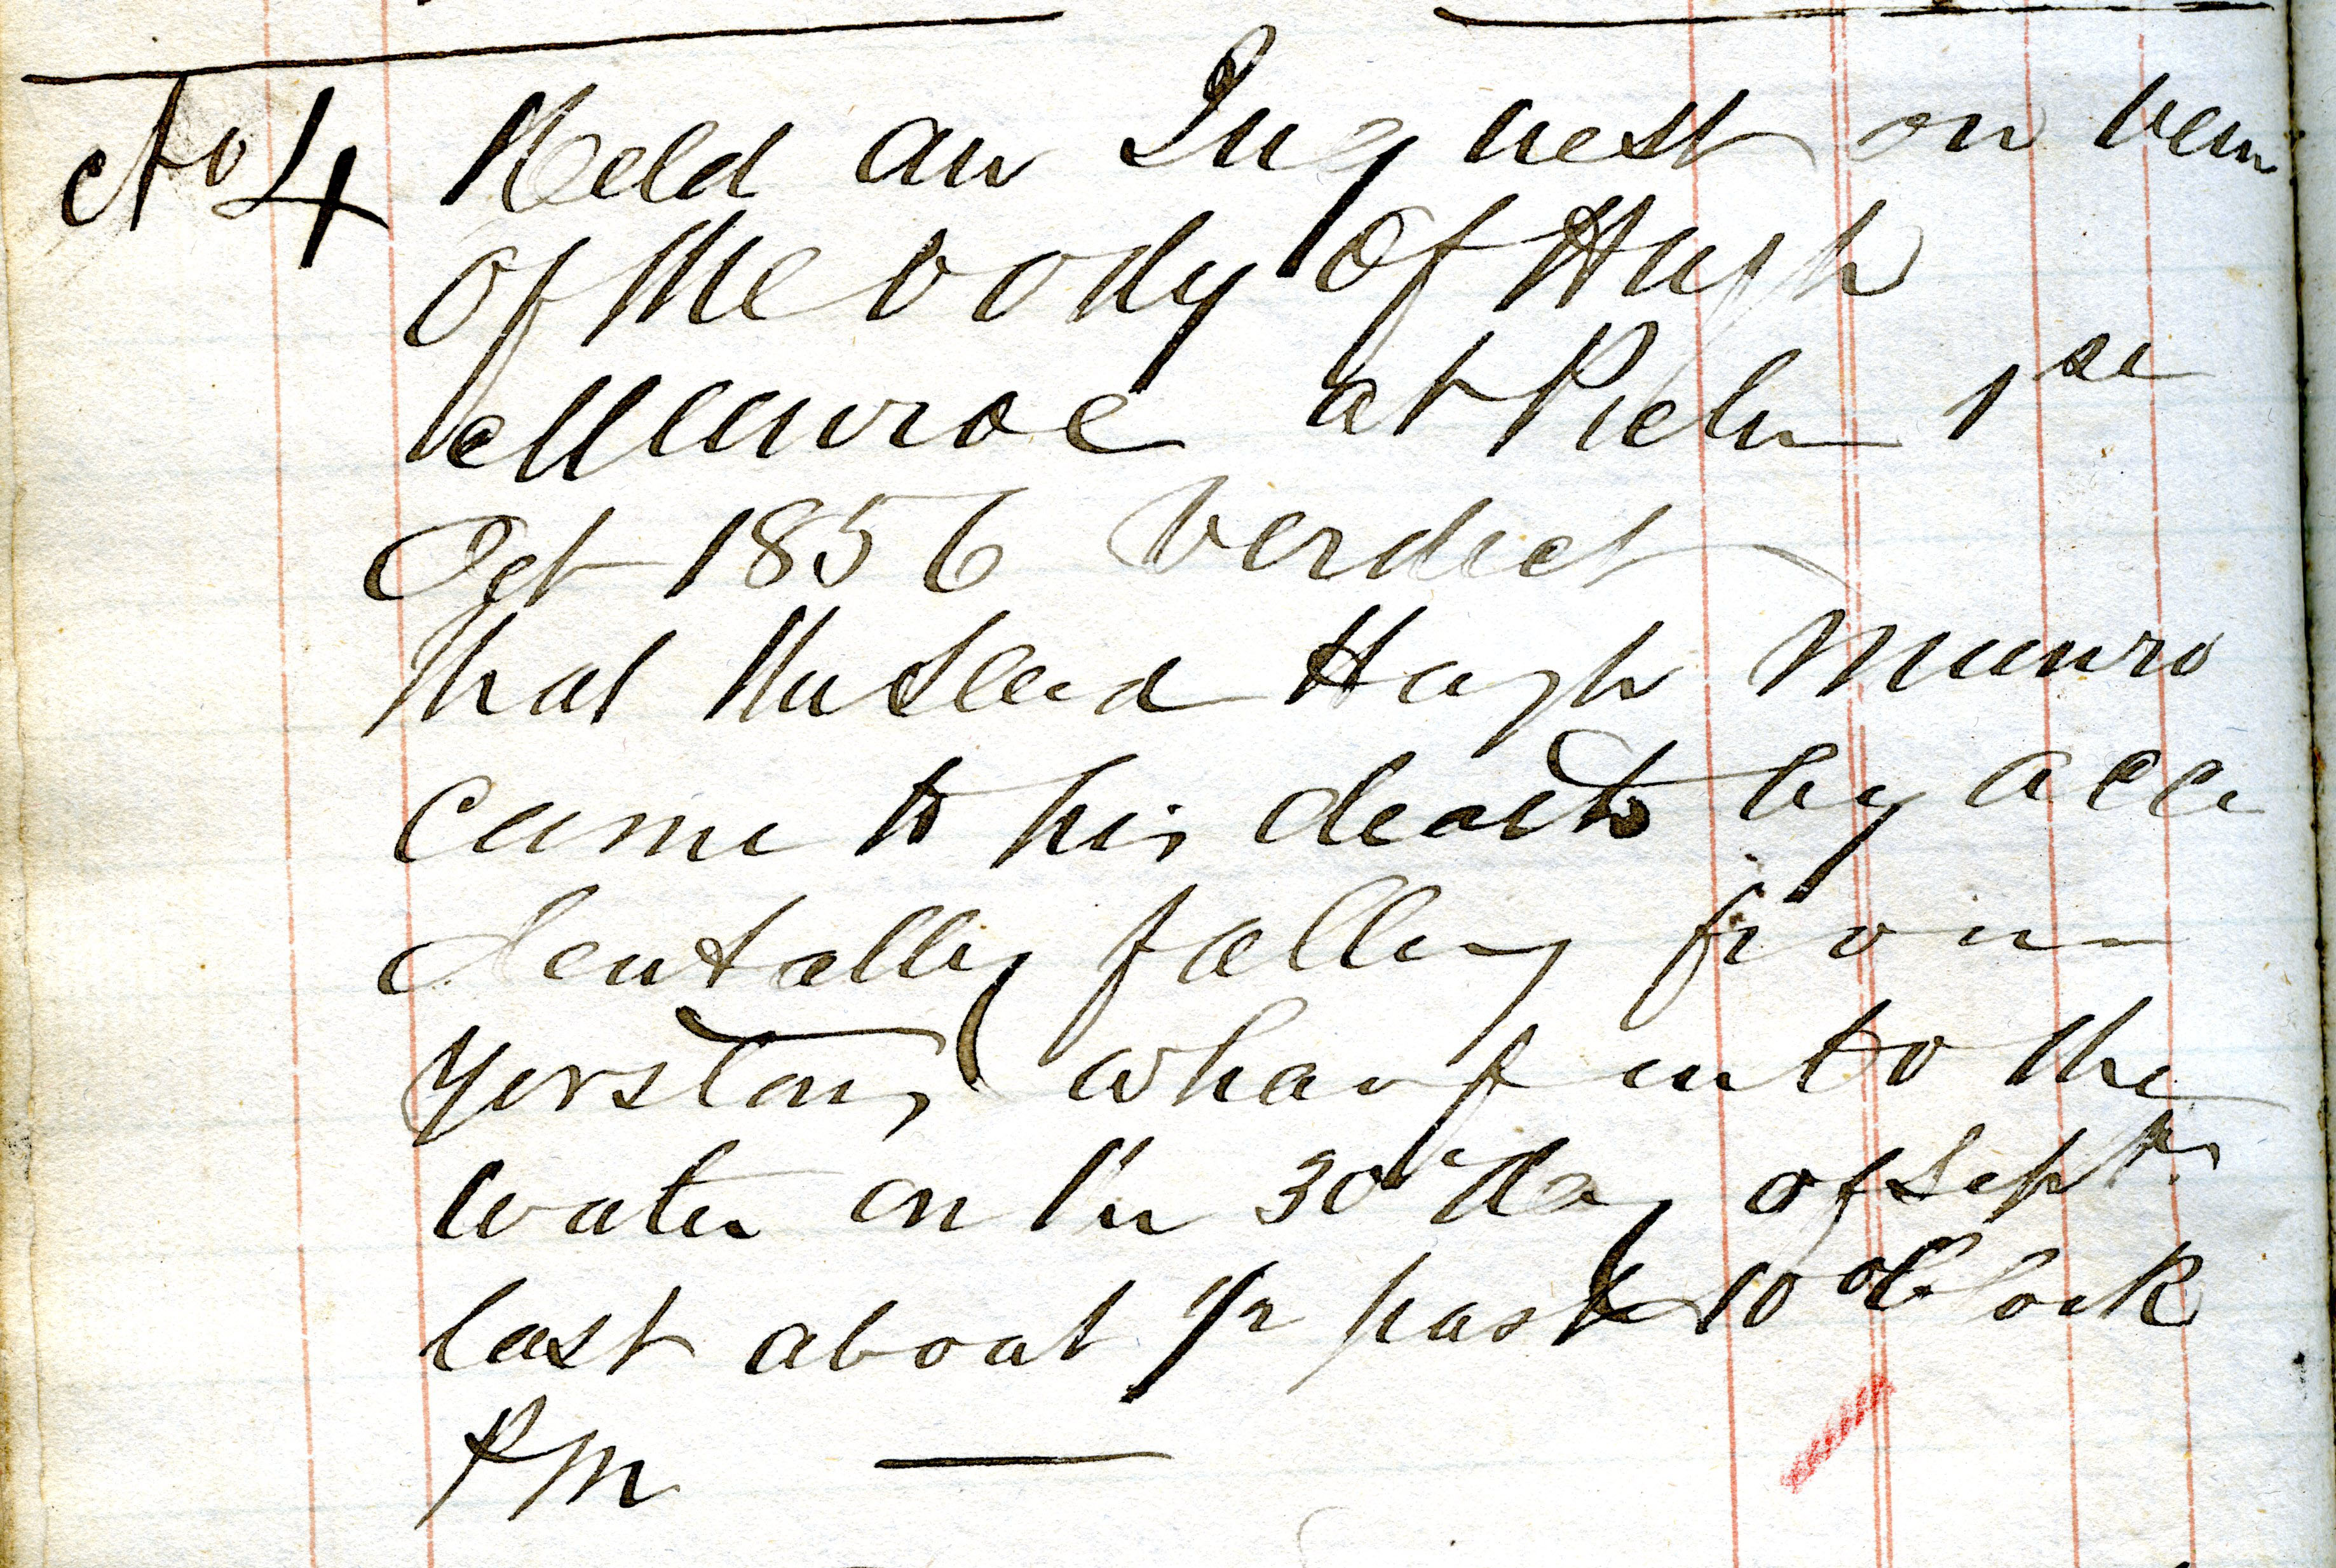 No 4 Held an Inquest on view
of the body of Hugh
Munroe at Pictou 1st
Oct 1856 Verdict
that the Said Hugh Munro
came to his death by acci
dentally falling from
Yorstons wharf into the
water on the 30th day of Sept
last about 1/2 past 10 oClock
PM